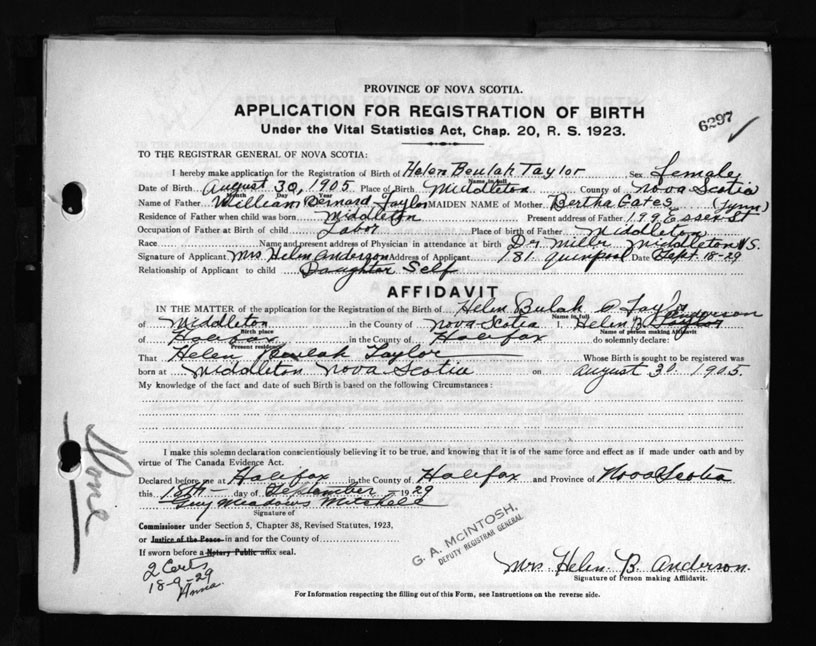 PROVINCE OF NOVA SCOTIA.
APPLICATION FOR REGISTRATION OF BIRTH
Under the Vital Statistics Act, Chap. 20, R. S. 1923.
6297
TO THE REGISTRAR GENERAL OF NOVA SCOTIA:
I hereby make application for the Registration of Birth of Helen Beulah Taylor Sex female
Name in full
Date of Birth August 30, 1905 Place of Birth Middleton County of Nova Scotia
Month Day Year
Name of Father William Bernard Taylor MAIDEN NAME of Mother Bertha Gates (Lynn)
Residence of Father when child was born Middleton Present address of Father 199 Essex St
Occupation of Father at Birth of child Labor Place of birth of Father Middleton
Race Name and present address of Physician in attendance at birth Dr Miller Middleton N.S.
Signature of Applicant Mrs Helen Anderson Address of Applicant 181 Quinpool Date Sept. 18-29
Relationship of Applicant to child Daughter Self
AFFIDAVIT
IN THE MATTER of the application for the Registration of the Birth of Helen Bulah Taylor
Name in full
Anderson
of Middleton in the County of Nova Scotia I, Helen B. Taylor
Birth place
Name of person making Affidavit
of Halifax in the County of Halifax do solemnly declare:
Present residence
That Helen Beulah Taylor Whose Birth is sought to be registered was
born at Middleton Nova Scotia on August 30 1905
My knowledge of the fact and date of such Birth is based on the following Circumstances:
I make this solemn declaration conscientiously believing it to be true, and knowing that it is of the same force and effect as if made under oath and by
virtue of The Canada Evidence Act.
Declared before me at Halifax in the County of Halifax and Province of Nova Scotia
this 18th day of September 1929
Guy Meadows Mitchell
Signature of
Commissioner under Section 5, Chapter 38, Revised Statutes, 1923,
or Justice of the Peace in and for the County of
If sworn before a Notary Public affix seal.
G. A. McINTOSH,
DEPUTY REGISTRAR GENERAL
Mrs Helen B. Anderson.
Signature of Person making Affidavit.
2 Certs
18-9-29
Annie
For Information respecting the filling out of this Form, see Instructions on the reverse side.
Done